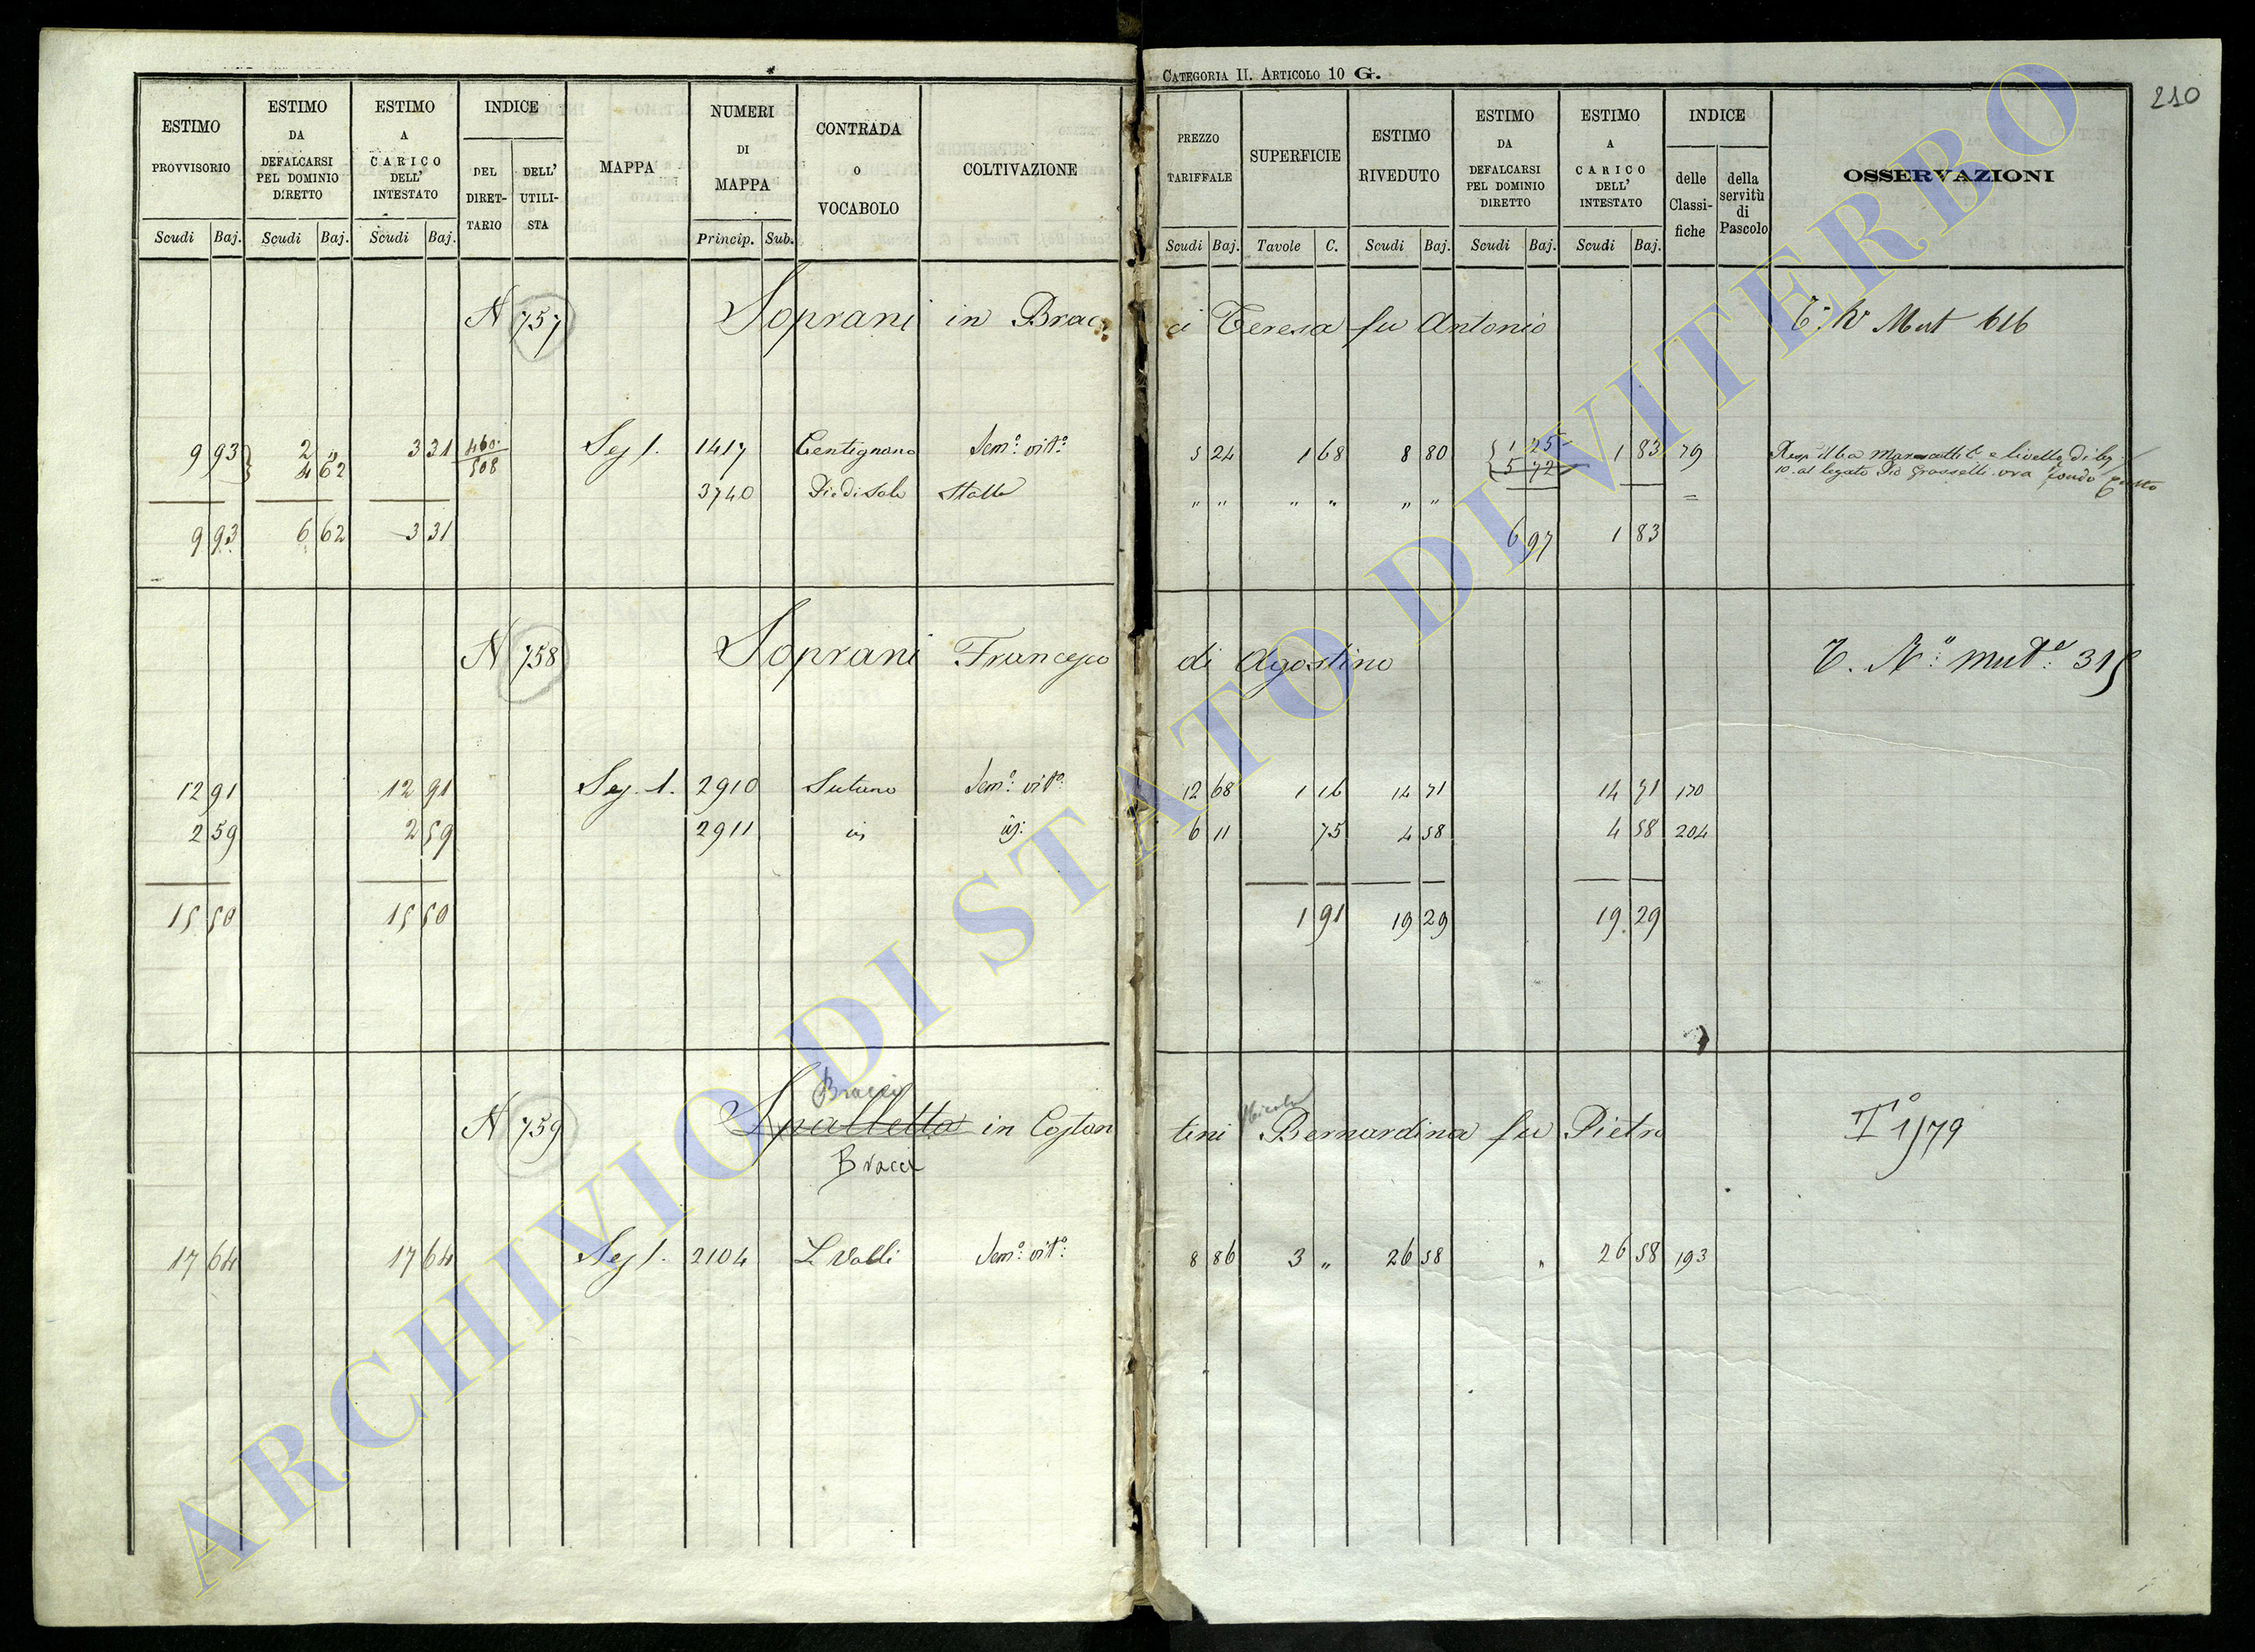 CATEGORIA II. ARTICOLO 10 G.
210
ESTIMO PROVVISORIO Scudi Baj.
ESTIMO DA DEFALCARSI PEL DOMINIO DIRETTO Scudi Baj.
ESTIMO A CARICO DELL' INTESTATO Scudi Baj.
INDICE DEL DIRET-TARIO DELL' UTILI-STA
MAPPA
NUMERI DI MAPPA Princip. Sub.
CONTRADA o VOCABOLO
COLTIVAZIONE
PREZZO TARIFFALE Scudi Baj.
SUPERFICIE Tavole C.
ESTIMO RIVEDUTO Scudi Baj.
ESTIMO DA DEFALCARSI PEL DOMINIO DIRETTO Scudi Baj.
ESTIMO A CARICO DELL' INTESTATO Scudi Baj.
INDICE delle Classi-fiche della servitù di Pascolo
OSSERVAZIONI
N 757 Soprani in Bracci Teresa fu Antonio Mut 616
9 93 2 " 3 31 460 Sez 1. 1417 Centignano Sem.o vit.o 5 24 1 68 8 80 1 25 1 83 79
4 62 508 5 72
10 al legato Pio Grasselli ora fondo
3740 Piedisole Stalla " " " " " " =
9 93 6 62 3 31 6 97 1 83
N 758 Soprani Francesco di Agostino T. N.o mut.e 315
12 91 12 91 Sez. 1. 2910 Sutano Sem.o vit.o 12 68 1 16 14 71 14 71 170
2 59 2 59 2911 id id: 6 11 75 4 58 4 58 204
15 50 15 50 1 91 19 29 19 29
Bracci
N 759 Spalletta in Costantini Bernardina fu Pietro 1/79
Bracci
17 64 17 64 Sez 1. 2104 L Valli Sem.o vit.o 8 86 3 " 26 58 " 26 58 193
ARCHIVIO DI STATO DI VITERBO